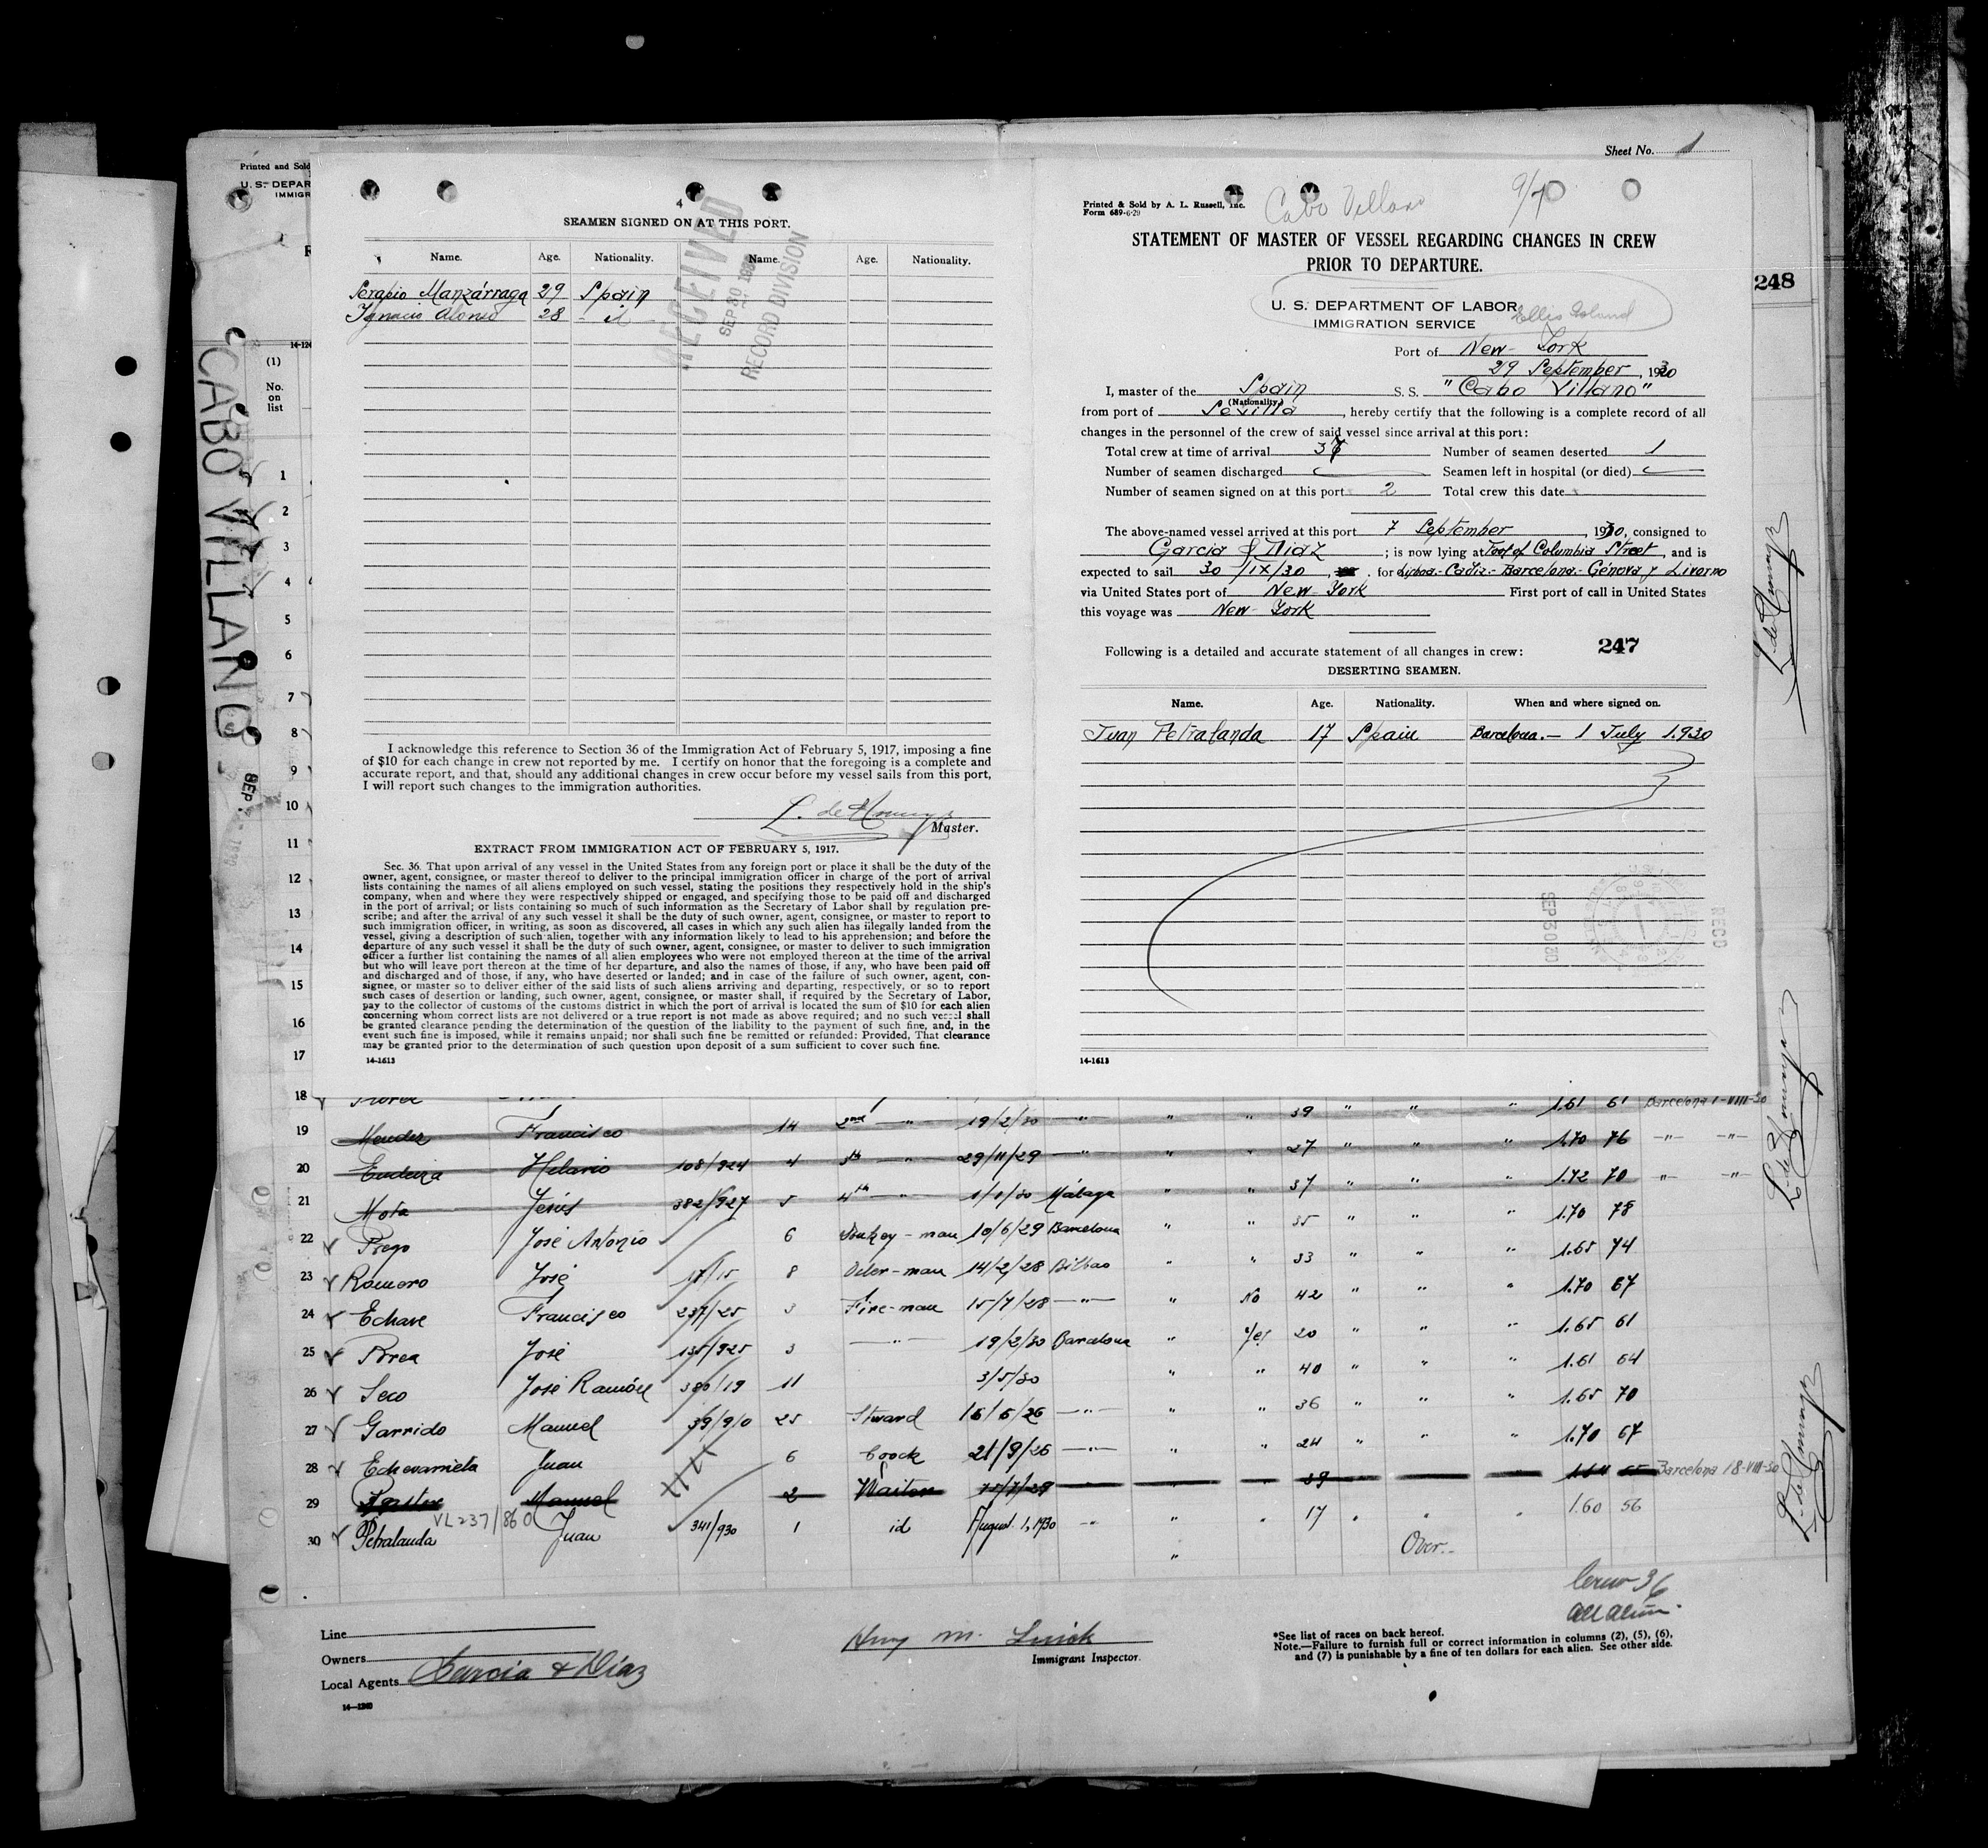 Sheet No. 1
Printed and Sold
U. S. DEPAR
IMMIGR
14-124
(1)
No.
on
list
CABO VILLANO
SEP
4
SEAMEN SIGNED ON AT THIS PORT.
Name. Age. Nationality. Name. Age. Nationality.
Serapio Manzárraga 29 Spain
Ignacio Alonso 28 - id
RECEIVED
SEP 30 1930
RECORD DIVISION
I acknowledge this reference to Section 36 of the Immigration Act of February 5, 1917, imposing a fine
of $10 for each change in crew not reported by me. I certify on honor that the foregoing is a complete and
accurate report, and that, should any additional changes in crew occur before my vessel sails from this port,
I will report such changes to the immigration authorities.
Master.
EXTRACT FROM IMMIGRATION ACT OF FEBRUARY 5, 1917.
Sec. 36. That upon arrival of any vessel in the United States from any foreign port or place it shall be the duty of the
owner, agent, consignee, or master thereof to deliver to the principal immigration officer in charge of the port of arrival
lists containing the names of all aliens employed on such vessel, stating the positions they respectively hold in the ship's
company, when and where they were respectively shipped or engaged, and specifying those to be paid off and discharged
in the port of arrival; or lists containing so much of such information as the Secretary of Labor shall by regulation pre-
scribe; and after the arrival of any such vessel it shall be the duty of such owner, agent, consignee, or master to report to
such immigration officer, in writing, as soon as discovered, all cases in which any such alien has illegally landed from the
vessel, giving a description of such alien, together with any information likely to lead to his apprehension; and before the
departure of any such vessel it shall be the duty of such owner, agent, consignee, or master to deliver to such immigration
officer a further list containing the names of all alien employees who were not employed thereon at the time of the arrival
but who will leave port thereon at the time of her departure, and also the names of those, if any, who have been paid off
and discharged and of those, if any, who have deserted or landed; and in case of the failure of such owner, agent, con-
signee, or master so to deliver either of the said lists of such aliens arriving and departing, respectively, or so to report
such cases of desertion or landing, such owner, agent, consignee, or master shall, if required by the Secretary of Labor,
pay to the collector of customs of the customs district in which the port of arrival is located the sum of $10 for each alien
concerning whom correct lists are not delivered or a true report is not made as above required; and no such vessel shall
be granted clearance pending the determination of the question of the liability to the payment of such fine, and, in the
event such fine is imposed, while it remains unpaid; nor shall such fine be remitted or refunded: Provided, That clearance
may be granted prior to the determination of such question upon deposit of a sum sufficient to cover such fine.
14-1613
Printed & Sold by A. L. Russell, Inc.
Form 689-6-29
Cabo Villano 9/7
STATEMENT OF MASTER OF VESSEL REGARDING CHANGES IN CREW
PRIOR TO DEPARTURE.
248
U. S. DEPARTMENT OF LABOR
Ellis Island
IMMIGRATION SERVICE
Port of New-York
29 September, 1930
I, master of the Spain S. S. "Cabo Villano"
(Nationality.)
from port of Sevilla, hereby certify that the following is a complete record of all
changes in the personnel of the crew of said vessel since arrival at this port:
Total crew at time of arrival Number of seamen deserted 1
Number of seamen discharged Seamen left in hospital (or died)
Number of seamen signed on at this port 2 Total crew this date
The above-named vessel arrived at this port 7 September, 1930, consigned to
Garcia & Diaz; is now lying at Foot of Columbia Street, and is
expected to sail 30/IX/30, for Lisboa.- Cadiz.- Barcelona.- Génova y Livorno
via United States port of New-York First port of call in United States
this voyage was New-York
Following is a detailed and accurate statement of all changes in crew: 247
DESERTING SEAMEN.
Name. Age. Nationality. When and where signed on.
Juan Petralanda 17 Spain Barcelona.- 1 July 1.930
SEP 30 30
RECD
14-1613
1
2
3
4
5
6
7
8
9
10
11
12
13
14
15
16
17
18 39 " " " 1.61 61 Barcelona 1-VIII-30
19 Mendez Francisco 14 2nd -"- 19/2/30 -"- " " 27 " " " 1.70 76 -"- -"-
20 Hilario 108/924 4 3th -"- 29/11/29 -"- " " 37 " " " 1.72 70 -"- -"-
21 Mota Jesús 382/927 5 4th -"- 1/1/30 Málaga " " 35 " " " 1.70 78
22 Prego José Antonio 6 Donkey-man 10/6/29 Barcelona " " 33 " " " 1.65 74
23 Romero José 17/15 8 Oiler-man 14/2/28 Bilbao " No 42 " " " 1.70 67
24 Echave Francisco 237/25 3 Fire-man 15/7/28 -"- " Yes 20 " " " 1.65 61
25 José 135/925 3 -"- 19/2/30 Barcelona " " 40 " " " 1.61 64
26 Seco José Ramón 380/19 11 3/5/30 " " 36 " " " 1.65 70
27 Garrido Manuel 39/910 25 Stward 16/6/26 -"- " " 24 " " " 1.70 67
28 Echevarrieta Juan 6 Coock 21/9/26 -"- " " 39 Barcelona 18-VIII-30
29 Manuel 2 Waiter 15/7/29 " 17 " " " 1.60 56
VL 237/860
30 Petralanda Juan 341/930 1 id August 1, 1930 -"- "
Over.-
Crew 36
all alien.
Line
Owners
Local Agents Garcia & Diaz
Immigrant Inspector.
*See list of races on back hereof.
Note.—Failure to furnish full or correct information in columns (2), (5), (6),
and (7) is punishable by a fine of ten dollars for each alien. See other side.
14—1240